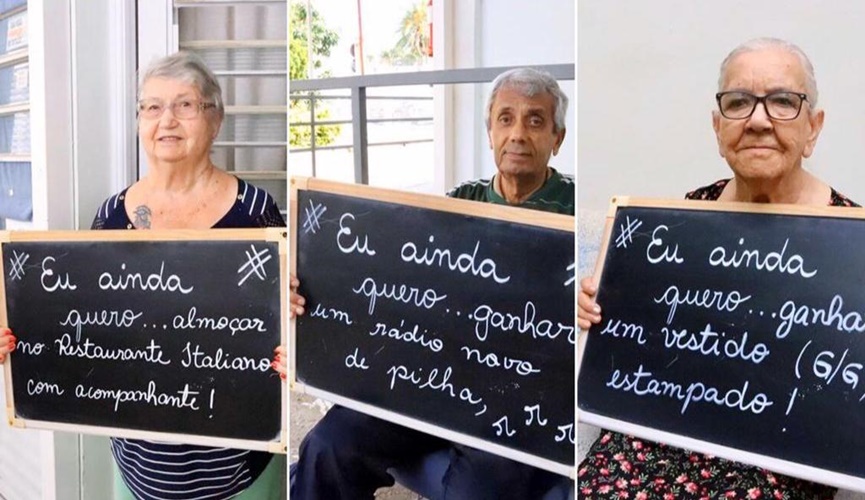 # Eu ainda #
quero...almoçar
no Restaurante Italiano
com acompanhante!
# Eu ainda #
quero...ganhar
um rádio novo
de pilha,
# Eu ainda
quero...ganha
um vestido (G/G
estampado!